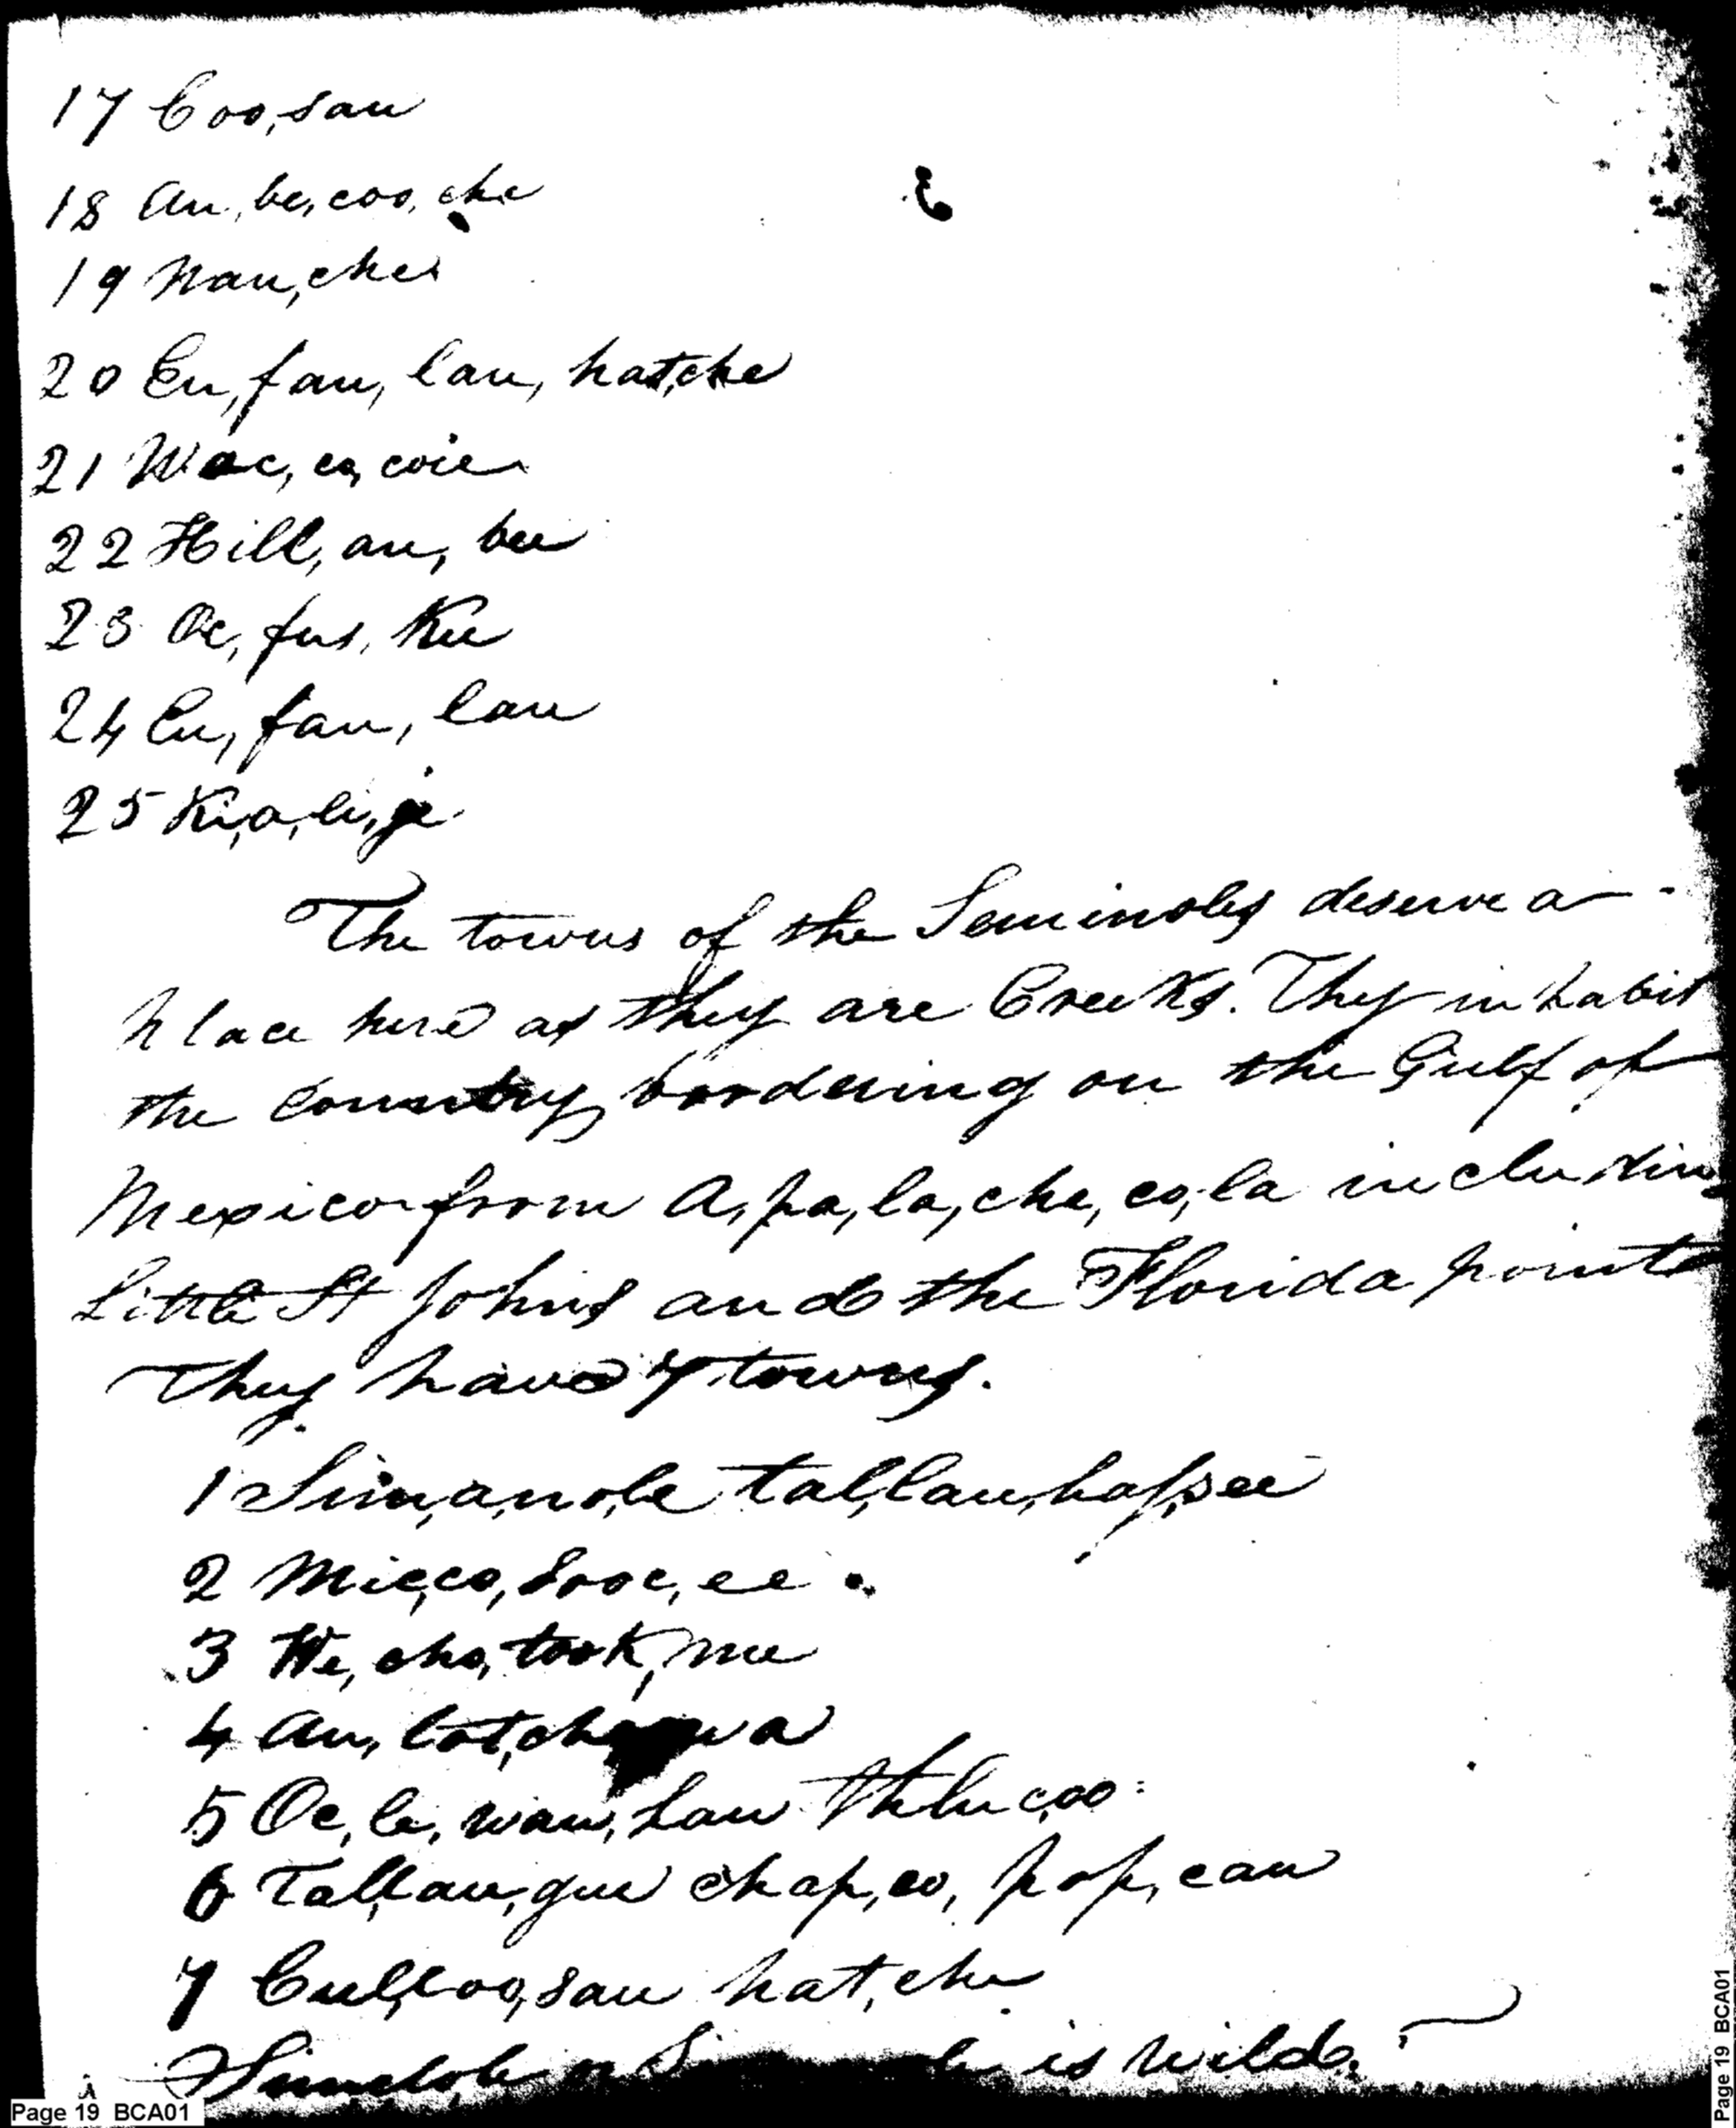 17 Coo,sau
18 Au,be,coo,che
19 Nau,che
20 Eu,fau,lau,hatche
21 Woc,co,coie
22 Hill,au,bee
23 Oc,fus,kee
24 Eu,fau,lau
25 Ki,o,li,je
The towns of the Seminoles deserve a
place here as they are Creeks. They inhabit
the country bordering on the Gulf of
Mexico from A,pa,la,che,co,la including
Little St Johns and the Florida point
They have 7 towns.
1 Sim,a,no,le tal,lau,has,see
2 Mic,co,sooc,ee
3 We,cho,took,me
4 Au,lot,che wa
5 Oc,le,wau,hau thluc,coo
6 Tal,lau,gue chap,co,pop,cau
7 Cul,loo,sau hat,che
is wild.
Page 19 BCA01
Page 19 BCA01